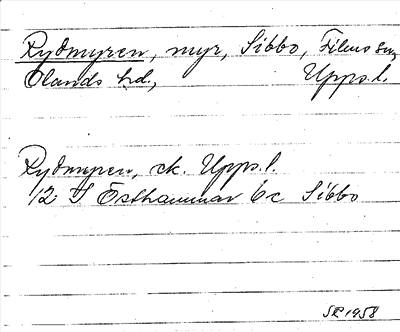 Rydmyren, myr, Sibbo, Films sn,
Olands hd., Upps.l.
Rydmyren, ek. Upps.l.
12 I Östhammar 6c Sibbo
SR 1958